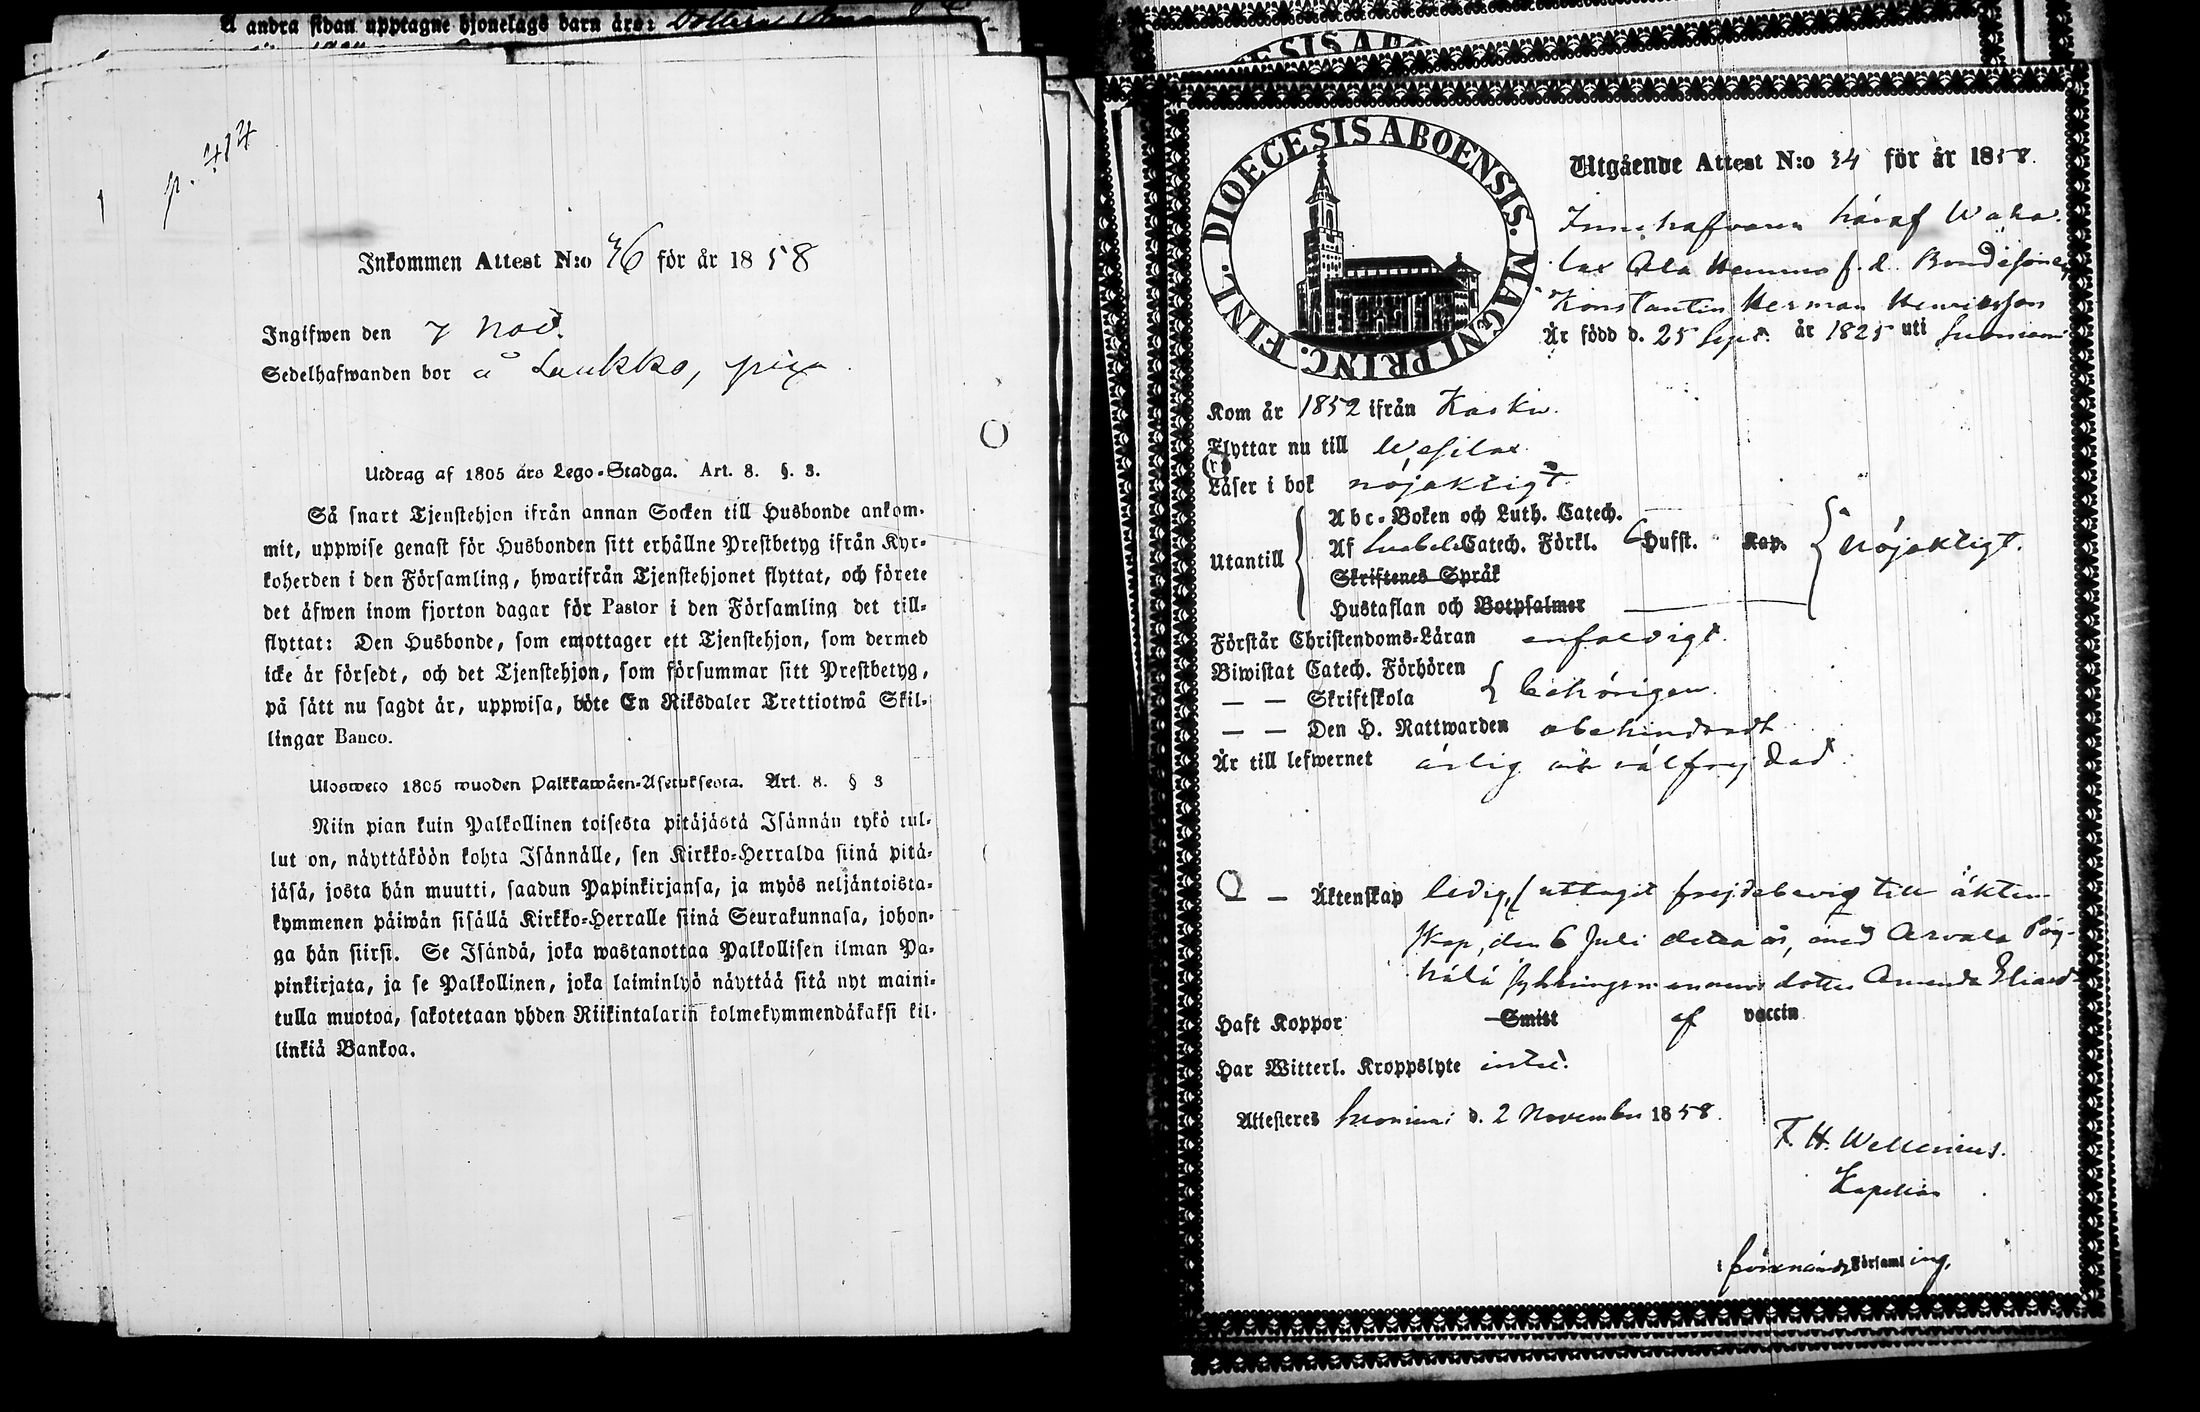 Å andra sidan upptagne hjonelags barn äro:
p. 414
Inkommen Attest N:o 46 för år 1858
Ingifwen den 7 Nov.
Sedelhafwanden bor å Laukko, piga
Utdrag af 1805 års Lego-Stadga. Art. 8. §. 3.
Så snart Tjenstehjon ifrån annan Socken till Husbonde ankom-
mit, uppwise genast för Husbonden sitt erhållne Prestbetyg ifrån Kyr-
koherden i den Församling, hwarifrån Tjenstehjonet flyttat, och förete
det äfwen inom fjorton dagar för Pastor i den Församling det till-
flyttat: Den Husbonde, som emottager ett Tjenstehjon, som dermed
icke är försedt, och det Tjenstehjon, som försummar sitt Prestbetyg,
på sätt nu sagdt är, uppwisa, böte En Riksdaler Trettiotwå Skil-
lingar Banco.
Ulosweto 1805 wuoden Palkkawäen-Asetuksesta. Art. 8. § 3
Niin pian kuin Palkollinen toisesta pitäjästä Isännän tykö tul-
lut on, näyttäköön kohta Isännälle, sen Kirkko-Herralda siinä pitä-
jäsä, josta hän muutti, saadun Papinkirjansa, ja myös neljäntoista-
kymmenen päiwän sisällä Kirkko-Herralle siinä Seurakunnasa, johon-
ga hän siirsi. Se Isändä, joka wastanottaa Palkollisen ilman Pa-
pinkirjata, ja se Palkollinen, joka laiminlyö näyttää sitä nyt maini-
tulla muotoa, sakotetaan yhden Riikintalarin kolmekymmendäkaksi kil-
linkiä Bankoa.
DIOECESIS ABOENSIS. MAGNI PRINC. FINL.
Utgående Attest N:o 34 för år 1858.
Innehafvaren häraf Waha-
lax Ala Hemmo f. d. Bondesonen
Konstantin Herman Henriksson
Är född d. 25 Sept. år 1825 uti Suoniemi
Kom år 1852 ifrån Karku.
Flyttar nu till Wesilax.
Läser i bok nöjaktigt
Utantill
Abc-Boken och Luth. Catech.
Af Svebeli Catech. Förkl. 6 Hufst. Kap. nöjaktigt.
Skriftenes Språk
Hustaflan och Botpsalmer
Förstår Christendoms-Läran enfaldigt.
Biwistat Catech. Förhören
— — Skriftskola behörigen.
— — Den H. Nattwarden obehindradt
Är till lefwernet ärlig och välfrejdad.
— Äktenskap ledig, uttagit frejdebevis till äkten-
skap, den 6 Juli detta år, med Arvala
hälä dotter Amanda
Haft Koppor Smitt af vaccin
Har Witterl. Kroppslyte intet.
Attesteres Suoniemi d. 2 November 1858.
F. H. Wellenius.
Kapellan
i förenämnde Församling.